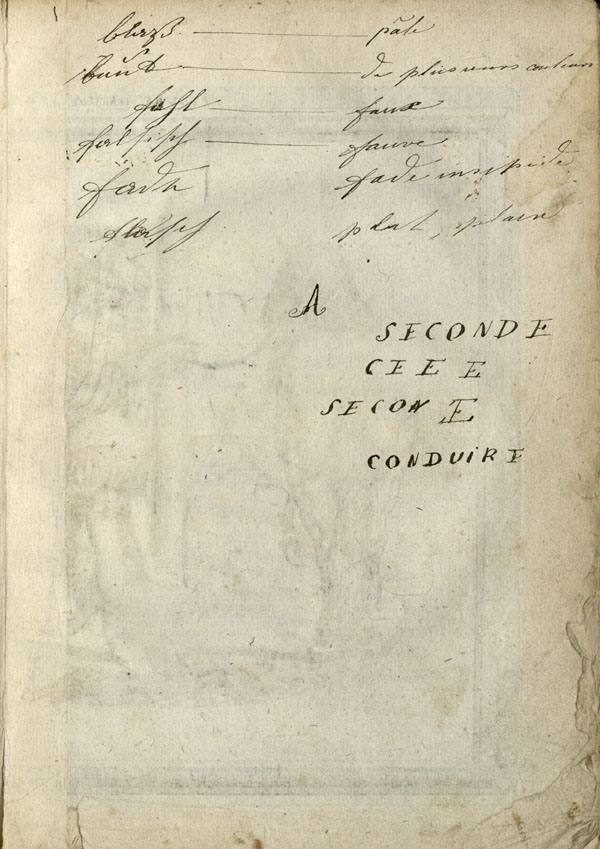 blaß — pâle
bunt — de plusieurs couleurs
fahl — faux
falsisch — fauve
fade — fade insipide
flasch — plat, plain
A
SECONDE
CEE E
SECON E
CONDUIRE